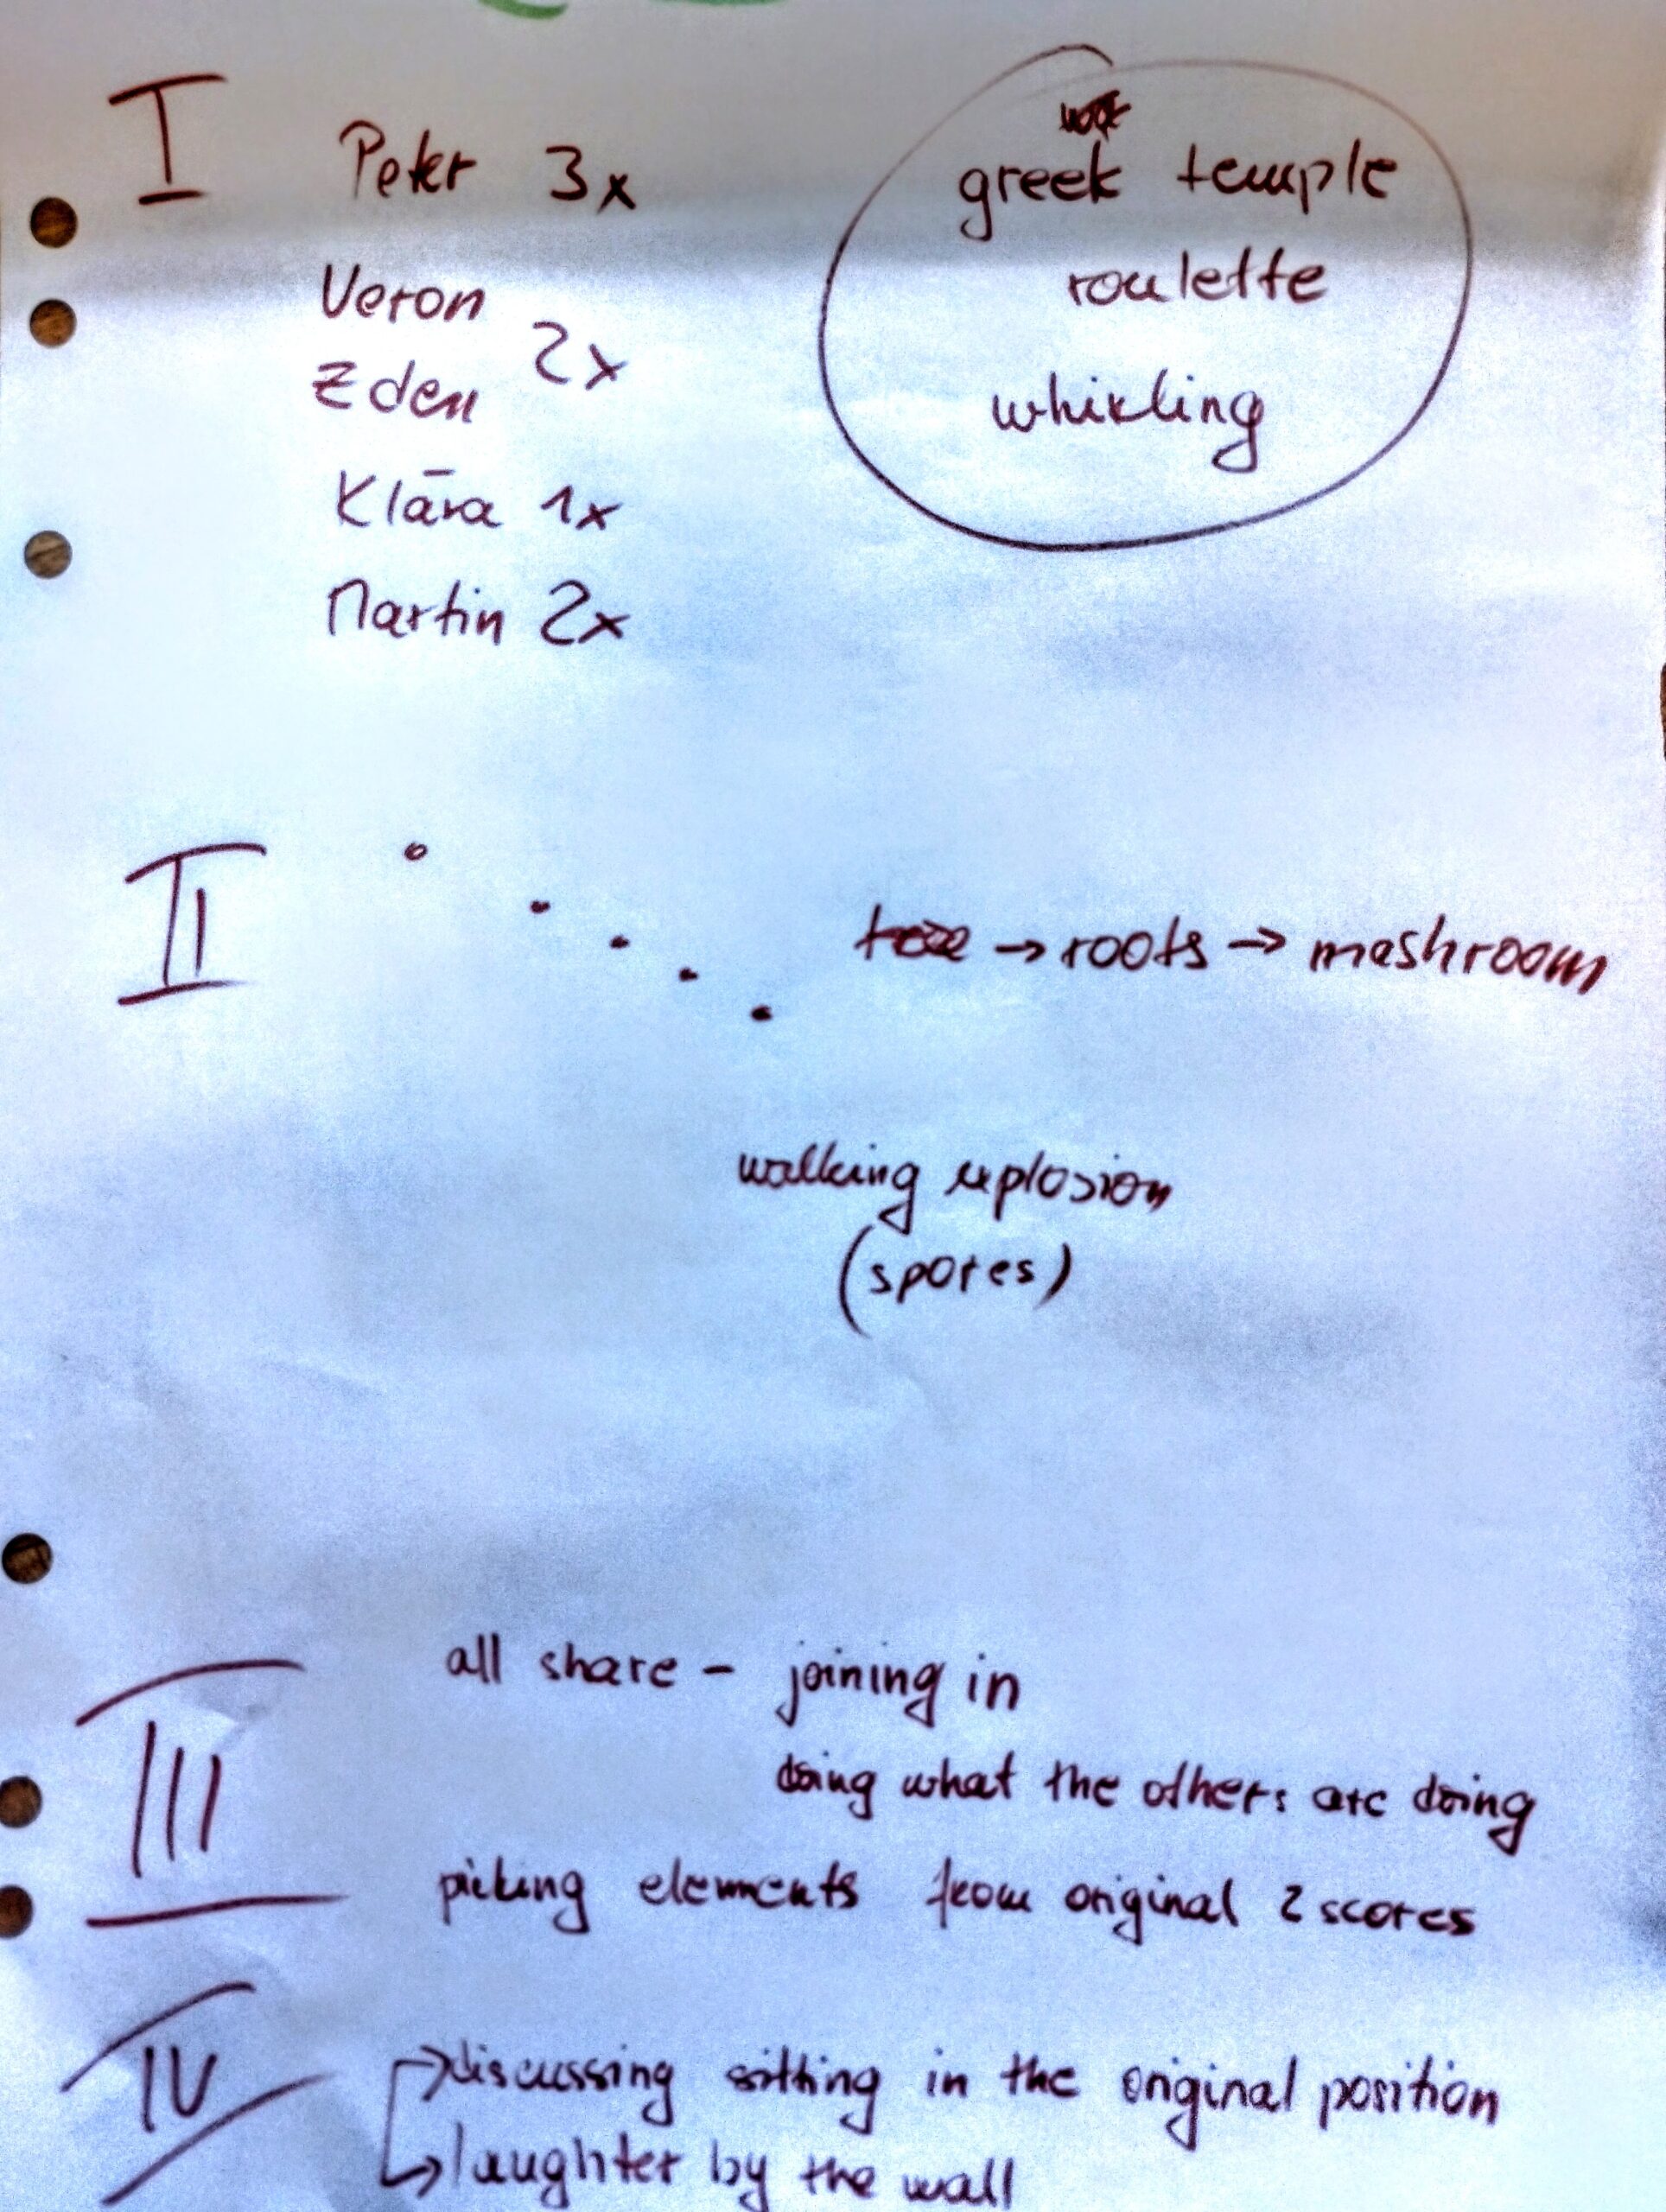 I
Peter 3x
Veron
Eden 2x
Klāra 1x
Martin 2x
greek temple
roulette
whirling
II
→ roots → meshroom
walking explosion
(spores)
III
all share - joining in
doing what the others are doing
picking elements from original 2 scores
IV
→ discussing sitting in the original position
→ laughter by the wall